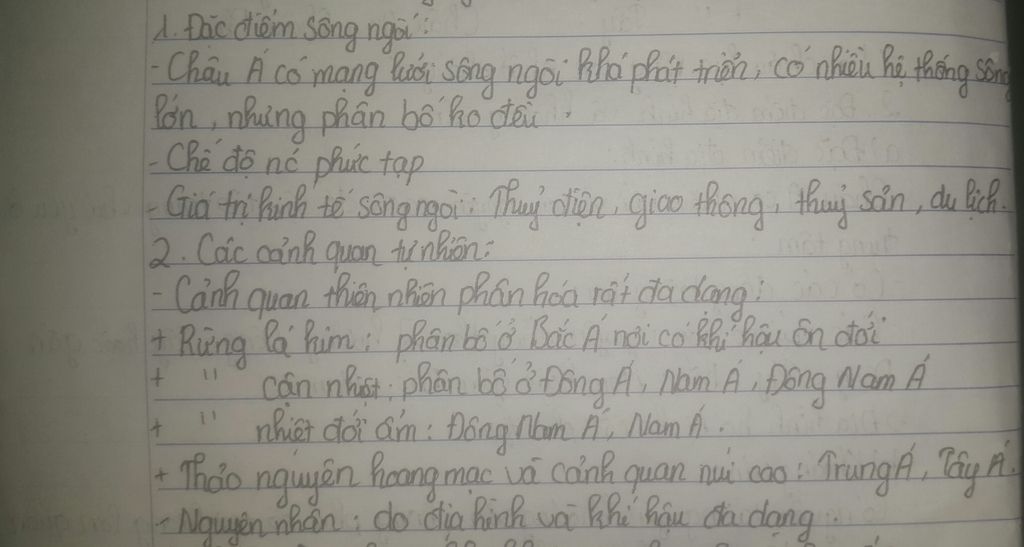 1. Đặc điểm sông ngòi:
- Châu Á có mạng lưới sông ngòi khá phát triển, có nhiều hệ thống sông
lớn, nhưng phân bố ko đều.
- Chế độ nc phức tạp
- Giá trị kinh tế sông ngòi: Thuỷ điện, giao thông, thuỷ sản, du lịch.
2. Các cảnh quan tự nhiên:
- Cảnh quan thiên nhiên phân hóa rất đa dạng:
+ Rừng lá kim: phân bố ở Bắc Á nơi có khí hậu ôn đới
+ " cận nhiệt: phân bố ở Đông Á, Nam Á, Đông Nam Á
+ " nhiệt đới ẩm: Đông Nam Á, Nam Á.
+ Thảo nguyên hoang mạc và cảnh quan núi cao: Trung Á, Tây Á.
- Nguyên nhân: do địa hình và khí hậu đa dạng.